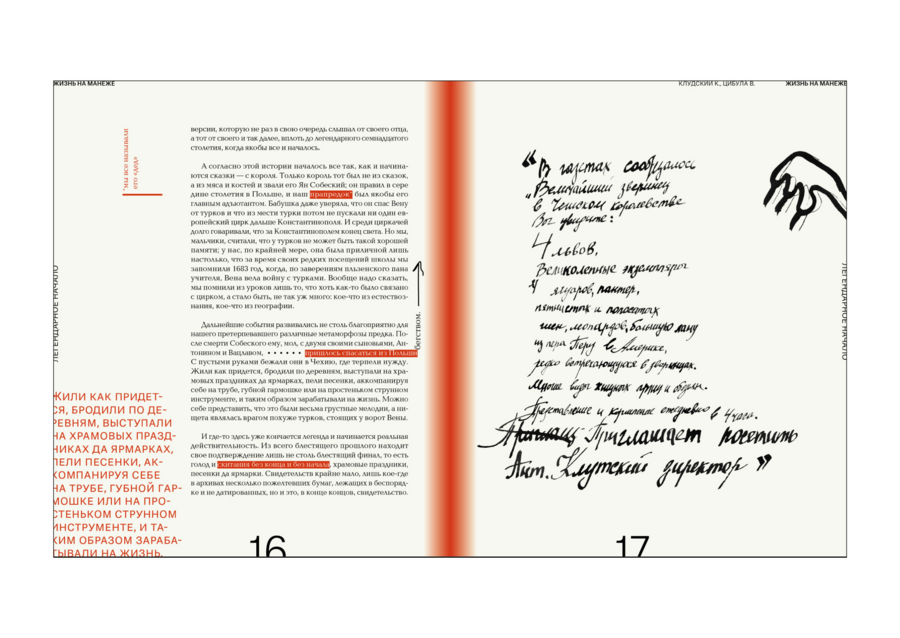 ЖИЗНЬ НА МАНЕЖЕ
"мы все называли
его «дед»
версии, которую не раз в свою очередь слышал от своего отца,
а тот от своего и так далее, вплоть до легендарного семнадцатого
столетия, когда якобы все и началось.
А согласно этой истории началось все так, как и начина-
ются сказки — с короля. Только король тот был не из сказок,
а из мяса и костей и звали его Ян Собеский; он правил в сере
дине столетия в Польше, и наш прапредок был якобы его
главным адъютантом. Бабушка даже уверяла, что он спас Вену
от турков и что из мести турки потом не пускали ни один ев-
ропейский цирк дальше Константинополя. И среди циркачей
долго говаривали, что за Константинополем конец света. Но мы,
мальчики, считали, что у турков не может быть такой хорошей
памяти; у нас, по крайней мере, она была приличной лишь
настолько, что за время своих редких посещений школы мы
запомнили 1683 год, когда, по заверениям пльзенского пана
учителя, Вена вела войну с турками. Вообще надо сказать,
мы помнили из уроков лишь то, что хоть как-то было связано
с цирком, а стало быть, не так уж много: кое-что из естествоз-
нания, кое-что из географии.
Дальнейшие события развивались не столь благоприятно для
нашего претерпевавшего различные метаморфозы предка. По-
сле смерти Собеского ему, мол, с двумя своими сыновьями, Ан-
тонином и Вацлавом, • • • • • • пришлось спасаться из Польши
бегством.
С пустыми руками бежали они в Чехию, где терпели нужду.
Жили как придется, бродили по деревням, выступали на хра-
мовых праздниках да ярмарках, пели песенки, аккомпанируя
себе на трубе, губной гармошке или на простеньком струнном
инструменте, и таким образом зарабатывали на жизнь. Можно
себе представить, что это были весьма грустные мелодии, а ни-
щета являлась врагом похуже турков, стоящих у ворот Вены.
И где-то здесь уже кончается легенда и начинается реальная
действительность. Из всего блестящего прошлого находят
свое подтверждение лишь не столь блестящий финал, то есть
голод и скитания без конца и без начала, храмовые праздники,
песенки да ярмарки. Свидетельств крайне мало, лишь кое-где
в архивах несколько пожелтевших бумаг, лежащих в беспоряд-
ке и не датированных, но и это, в конце концов, свидетельство.
ЛЕГЕНДАРНОЕ НАЧАЛО
ЖИЛИ КАК ПРИДЕТ-
СЯ, БРОДИЛИ ПО ДЕ-
РЕВНЯМ, ВЫСТУПАЛИ
НА ХРАМОВЫХ ПРАЗД-
НИКАХ ДА ЯРМАРКАХ,
ПЕЛИ ПЕСЕНКИ, АК-
КОМПАНИРУЯ СЕБЕ
НА ТРУБЕ, ГУБНОЙ ГАР-
МОШКЕ ИЛИ НА ПРО-
СТЕНЬКОМ СТРУННОМ
ИНСТРУМЕНТЕ, И ТА-
КИМ ОБРАЗОМ ЗАРАБА-
ТЫВАЛИ НА ЖИЗНЬ.
16
КЛУДСКИЙ К., ЦИБУЛА В.
ЖИЗНЬ НА МАНЕЖЕ
“В газетах сообщалось
„Величайший зверинец
в Чешском королевстве
Вы увидите:
4 львов,
Великолепные экземпляры
ягуаров, пантер,
пятнистых и полосатых
гиен, леопардов, большую ламу
из Перу в Америке,
редко встречающуюся в зверинцах.
Представление и кормление ежедневно в 4 часа.
Приглашает посетить
Ант. Клутский директор”
ЛЕГЕНДАРНОЕ НАЧАЛО
17